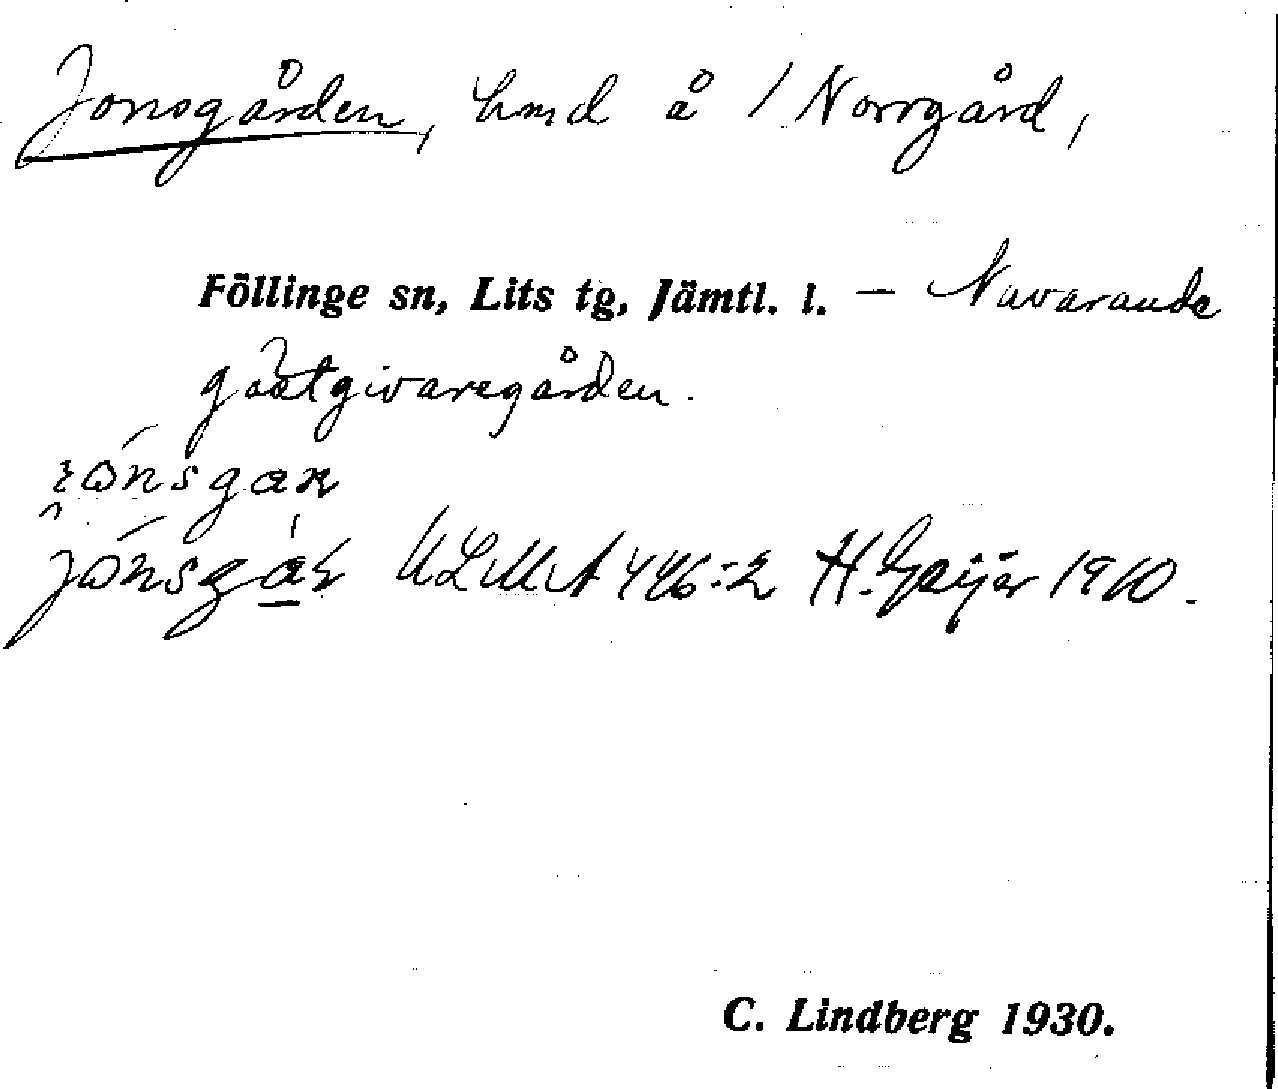 Jonsgården, hmd å 1 Norrgård,
Föllinge sn, Lits tg, Jämtl. l. – Nuvarande
gästgivaregården.
ULMA 446:2 H. Geijer 1910.
C. Lindberg 1930.